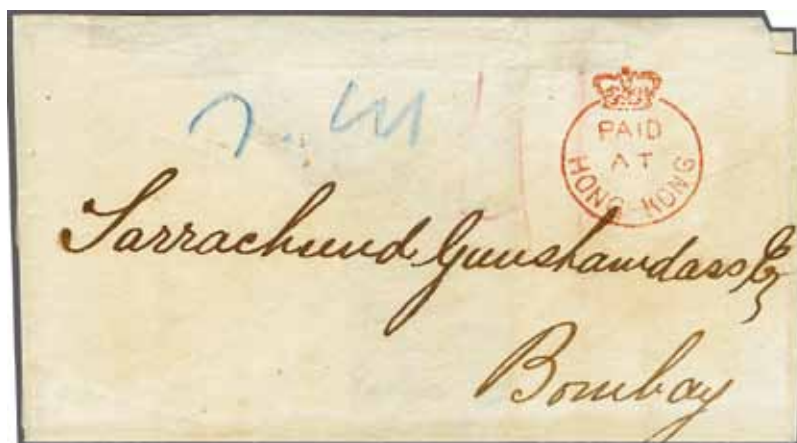 PAID
AT
HONG-KONG
Tarrachund Gunshamdass Esq
Bombay